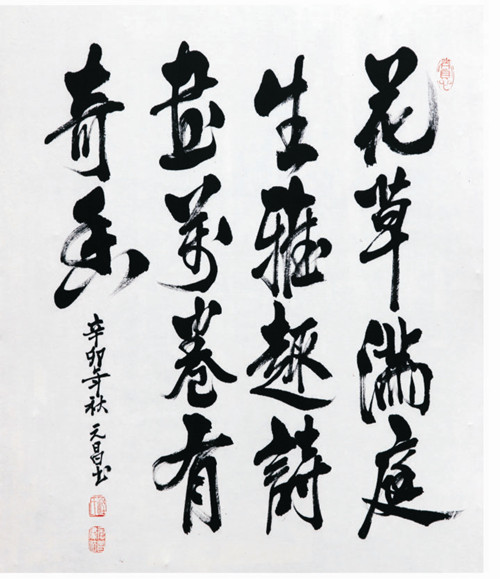 花草满庭
生雅趣诗
画万卷有
奇香
辛卯年秋 元昌书